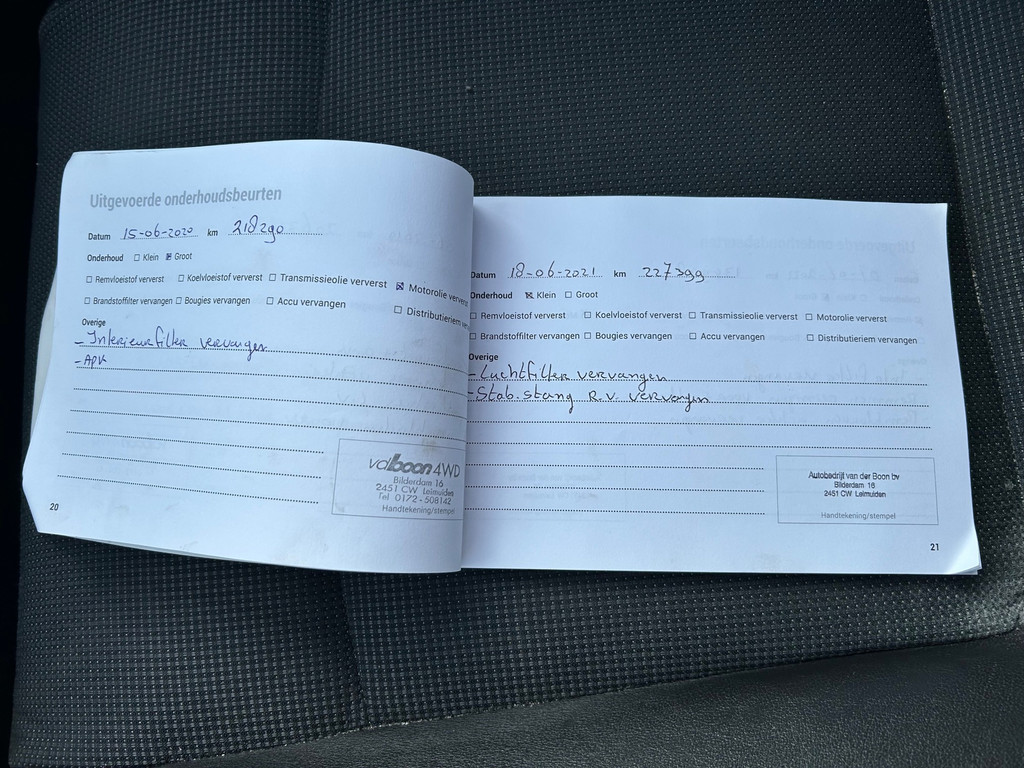 Uitgevoerde onderhoudsbeurten
Datum 15-06-2020 km 218290
Onderhoud ☐ Klein ☒ Groot
☐ Remvloeistof ververst ☐ Koelvloeistof ververst ☐ Transmissieolie ververst ☒ Motorolie ververst
☐ Brandstoffilter vervangen ☐ Bougies vervangen ☐ Accu vervangen ☐ Distributieriem ver
Overige
- Interieurfilter vervangen
- APK
valboon 4WD
Bilderdam 16
2451 CW Leimuiden
Tel 0172 - 508142
Handtekening/stempel
20
Datum 18-06-2021 km 227399
Onderhoud ☒ Klein ☐ Groot
☐ Remvloeistof ververst ☐ Koelvloeistof ververst ☐ Transmissieolie ververst ☐ Motorolie ververst
☐ Brandstoffilter vervangen ☐ Bougies vervangen ☐ Accu vervangen ☐ Distributieriem vervangen
Overige
- Luchtfilter vervangen
- Stab.stang R.V. vervangen
Autobedrijf van der Boon bv
Bilderdam 16
2451 CW Leimuiden
Handtekening/stempel
21